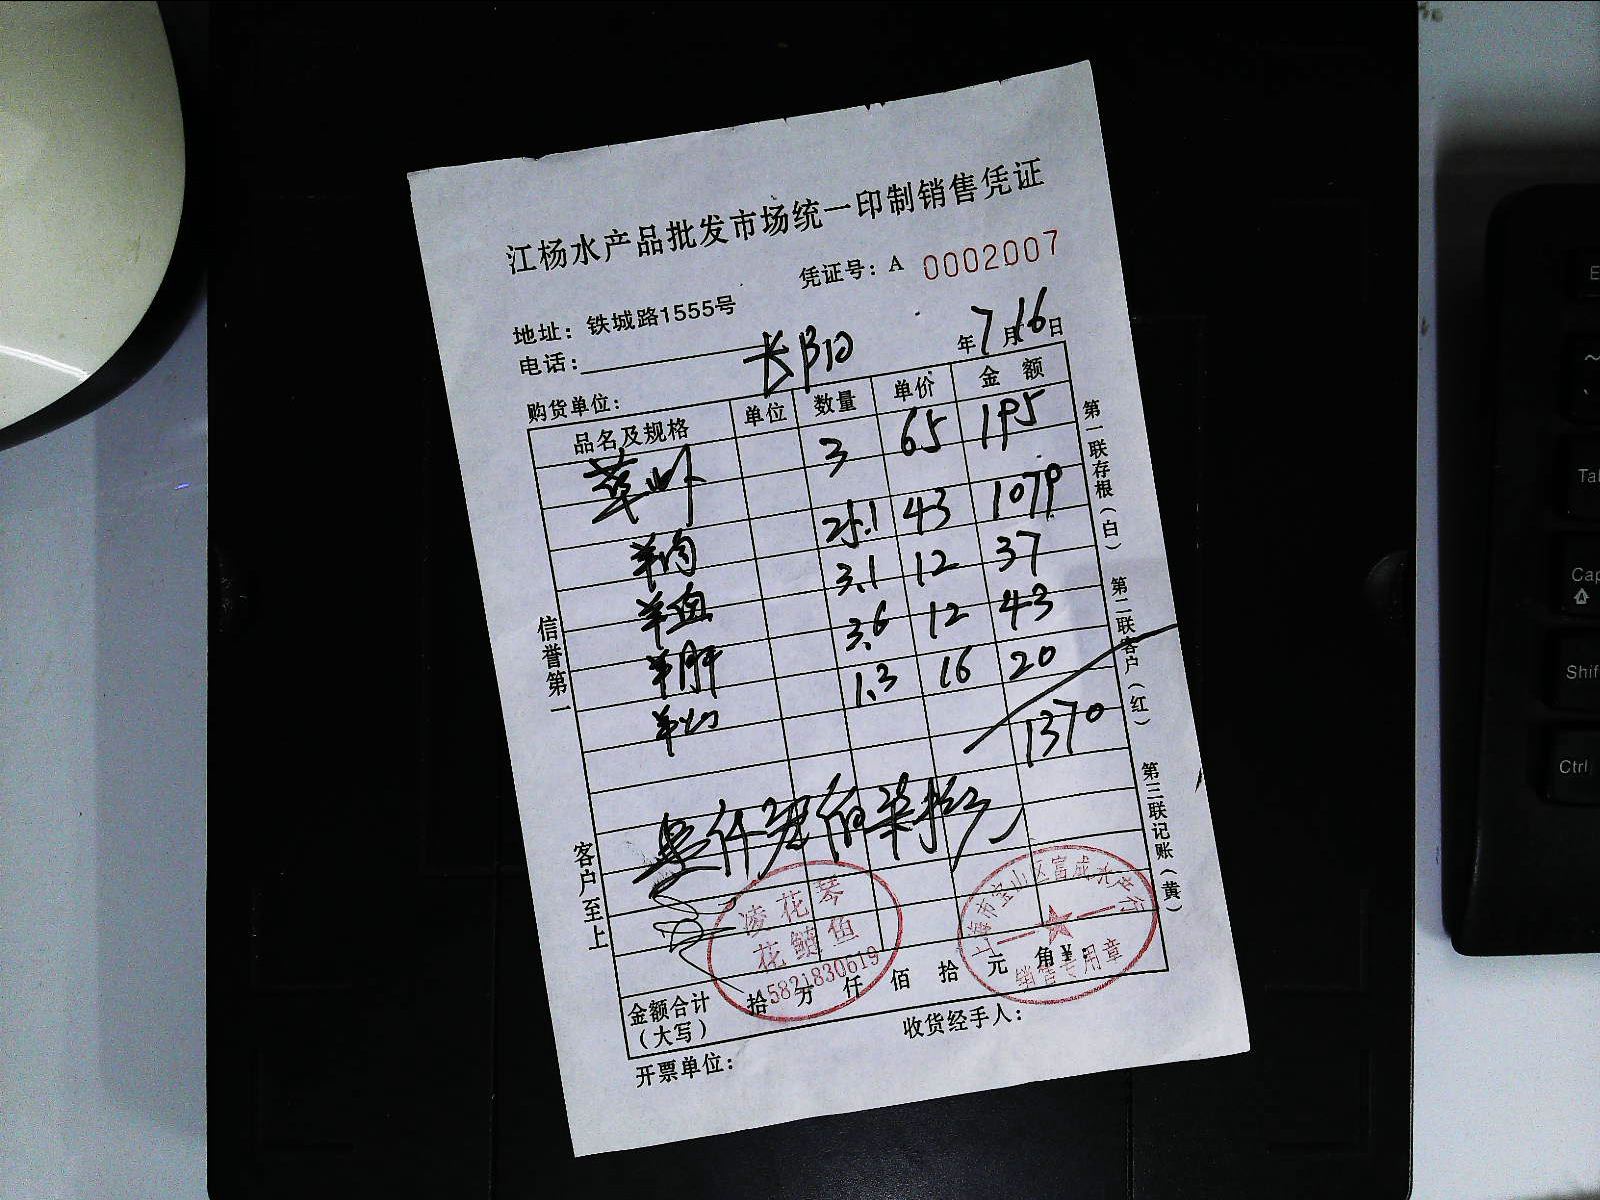 江杨水产品批发市场统一印制销售凭证
凭证号：A 0002007
地址：铁城路1555号
电话：
长阳
年7月16日
购货单位：
品名及规格 单位 数量 单价 金额
草虾 3 65 195
羊肉 25.1 43 1079
羊血 3.1 12 37
羊肝 3.6 12 43
羊 1.3 16 20
1370
壹仟叁佰柒拾元
金额合计（大写） 拾 万 仟 佰 拾 元 角 ¥：
开票单位： 收货经手人：
信誉第一
客户至上
第一联存根（白） 第二联客户（红） 第三联记账（黄）
凌花琴
花鲢鱼
15821830619
上海市宝山区富成水产行
销售专用章
E
Tab
Cap
Shif
Ctrl